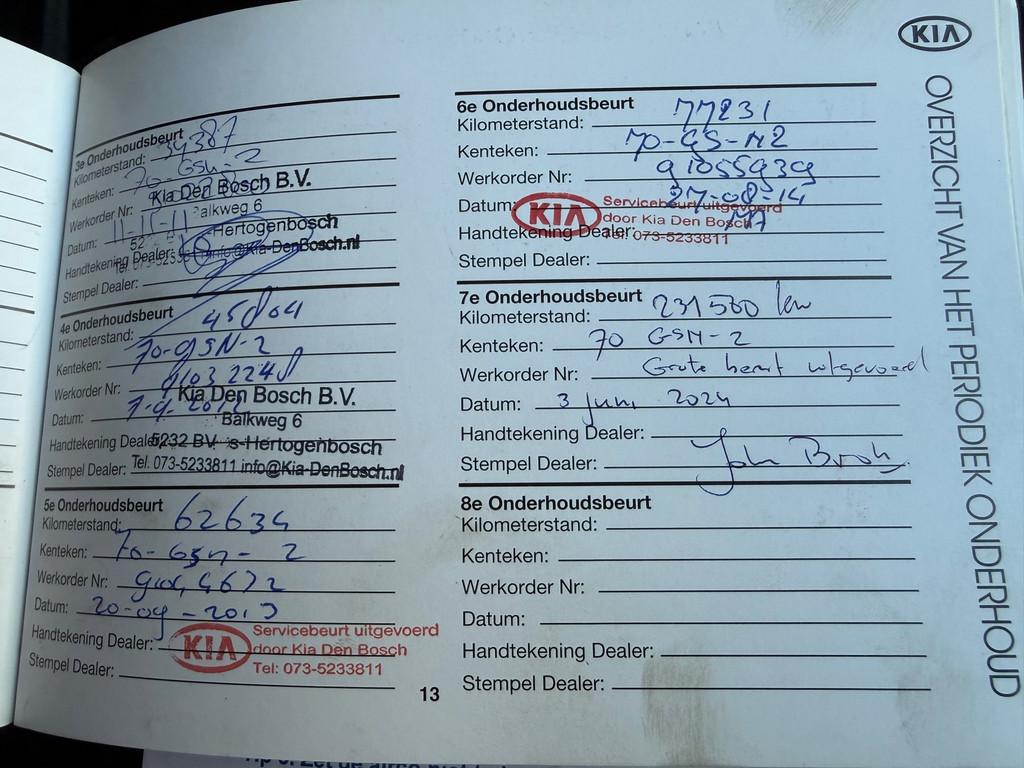 KIA
OVERZICHT VAN HET PERIODIEK ONDERHOUD
3e Onderhoudsbeurt
Kilometerstand: 34387
Kenteken: 70-GSN-2
Werkorder Nr:
Kia Den Bosch B.V.
Datum: 11-11-11
Balkweg 6
Hertogenbosch
Handtekening Dealer:
info@Kia-DenBosch.nl
Stempel Dealer:
4e Onderhoudsbeurt
Kilometerstand: 45804
Kenteken: 70-GSN-2
Werkorder Nr: 9103224
Kia Den Bosch B.V.
Datum: 7-9-2012
Balkweg 6
Handtekening Dealer:
5232 BV 's-Hertogenbosch
Stempel Dealer:
Tel. 073-5233811 info@Kia-DenBosch.nl
5e Onderhoudsbeurt
Kilometerstand: 62634
Kenteken: 70-GSN-2
Werkorder Nr:
Datum: 20-09-2013
Handtekening Dealer:
KIA
Servicebeurt uitgevoerd
door Kia Den Bosch
Tel: 073-5233811
Stempel Dealer:
13
6e Onderhoudsbeurt
Kilometerstand: 77231
Kenteken: 70-GS-N2
Werkorder Nr: 91055939
Datum: 27-08-14
KIA
Servicebeurt uitgevoerd
door Kia Den Bosch
Handtekening Dealer:
Tel: 073-5233811
Stempel Dealer:
7e Onderhoudsbeurt
Kilometerstand: 231500 km
Kenteken: 70 GSN-2
Werkorder Nr: Grote beurt uitgevoerd
Datum: 3 juni 2024
Handtekening Dealer:
Stempel Dealer: John
8e Onderhoudsbeurt
Kilometerstand:
Kenteken:
Werkorder Nr:
Datum:
Handtekening Dealer:
Stempel Dealer: